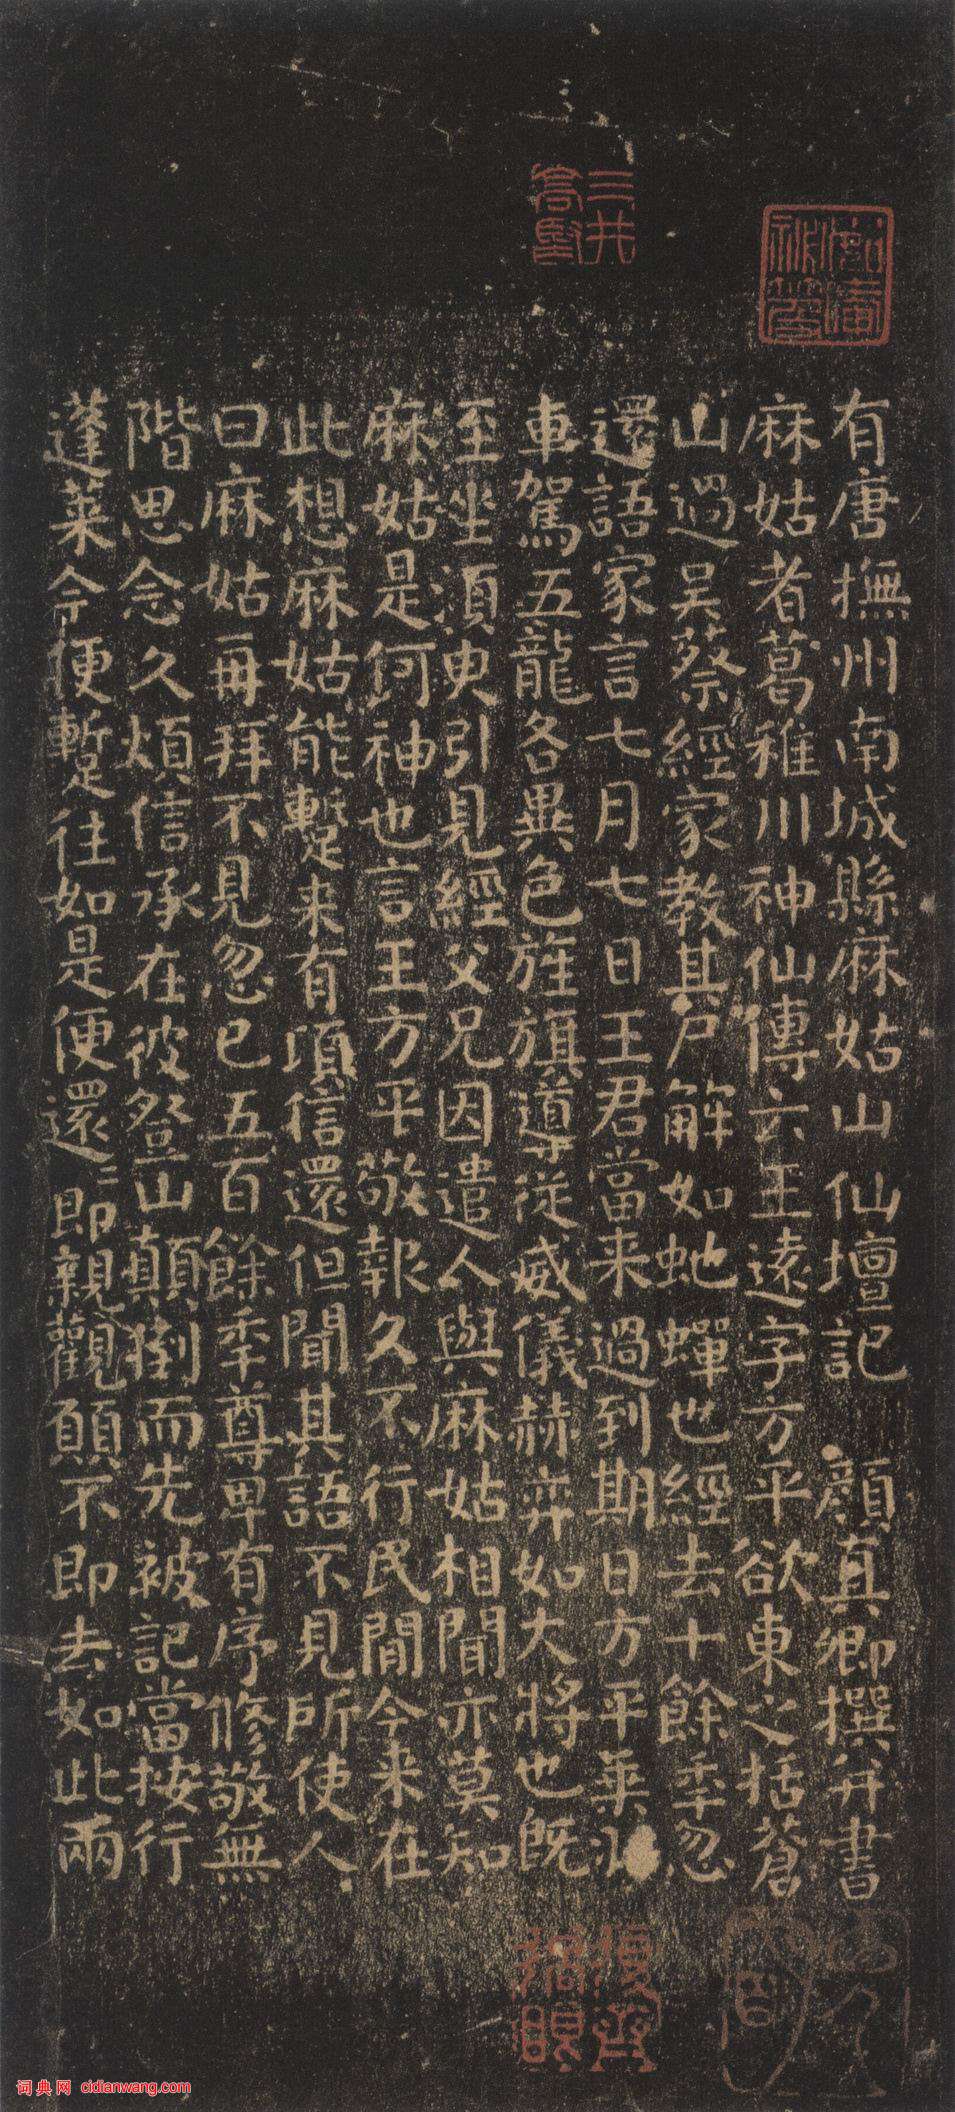 有唐撫州南城縣麻姑山仙壇記 顏真卿撰并書
麻姑者葛稚川神仙傳云王遠字方平欲東之括蒼
山過吳蔡經家教其尸解如虵蟬也經去十餘年忽
還語家言七月七日王君當来過到期日方平乗
車駕五龍各異色旌旗導從威儀赫弈如大將也既
至坐湏臾引見經父兄因遣人與麻姑相聞亦莫知
麻姑是何神也言王方平敬報久不行民間今来在
此想麻姑能蹔来有頃信還但聞其語不見所使人
曰麻姑再拜不見忽已五百餘年尊卑有序修敬無
階思念久煩信承在彼登山顛倒而先被記當按行
蓬萊今便蹔往如是便還還即親觀願不即去如此兩
三井
高堅
词典网 cidianwang.com